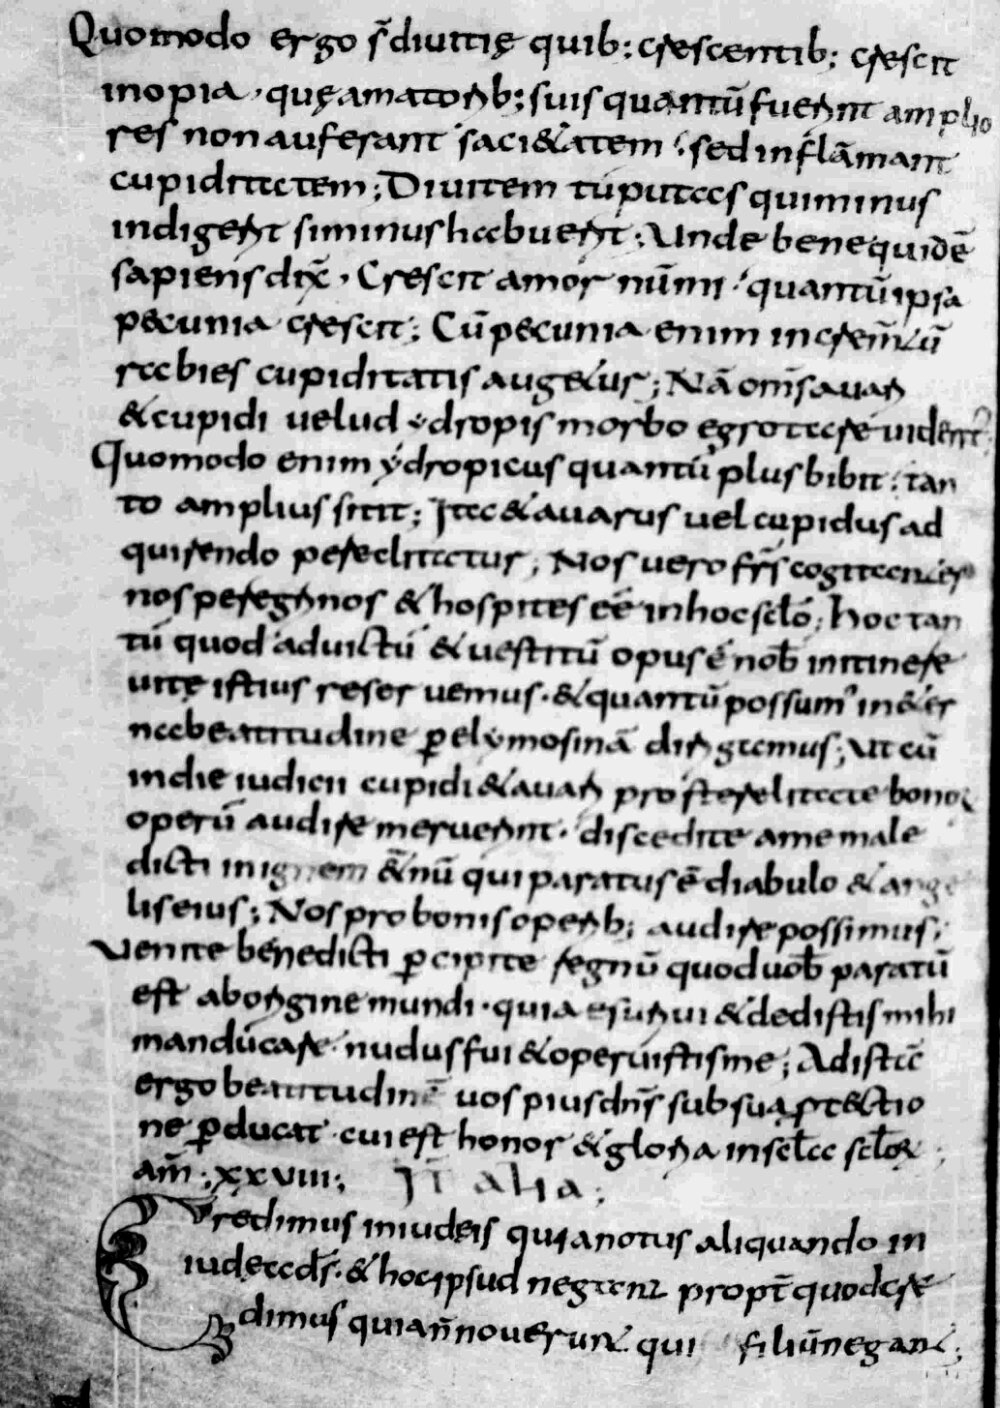 Quomodo ergo s̄ diuitię quib; crescentib; crescit
inopia · quę amatorib; suis quantū fuerint amplio
res non auferant sacietatem · sed inflāmant
cupiditatem ; Diuitem tu putas qui minus
indigerit si minus habuerit ; Unde bene quidē
sapiens dix̄ · Crescit amor nūmi · quantū ipsa
pecunia crescit ; Cū pecunia enim increm̄tū
rabies cupiditatis augetur ; Nā om̄s auari
& cupidi uelud ydropis morbo egrotare uident̄
Quomodo enim ydropicus quantū plus bibit · tan
to amplius sitit ; Ita & auarus uel cupidus ad
quirendo pereclitatur ; Nos uero fr̄s cogitantes
nos peregrinos & hospites eē in hoc sclō ; hoc tan
tū quod ad uictū & uestitū opus ē nob̄ in itinere
uitę istius reseruemus · & quantū possum' in æter
na beatitudine p elymosinā dirigamus ; Ut cū
in die iudicii cupidi & auari pro sterelitate bonor
operū audire meruerint · discedite a me male
dicti in ignem &̄nū qui paratus ē diabulo & ange
lis eius ; Nos pro bonis operib; audire possimus ·
Uenite benedicti p cipite regnū quod uob̄ paratū
est ab origine mundi · quia esuriui & dedistis mihi
manducare · nudus fui & operuistis me ; Ad istā
ergo beatitudinē uos pius dn̄s sub sua p tectio
ne p ducat · cui est honor & gloria in sclā sclor̄ ;
am̄ ; xxviii ; Italia ;
Credimus in iudeis quia notus aliquando in
iudea ds̄ · & hoc ipsud negant propt̄ quod cre
dimus quia n̄ nouerunt qui filiū negant ;